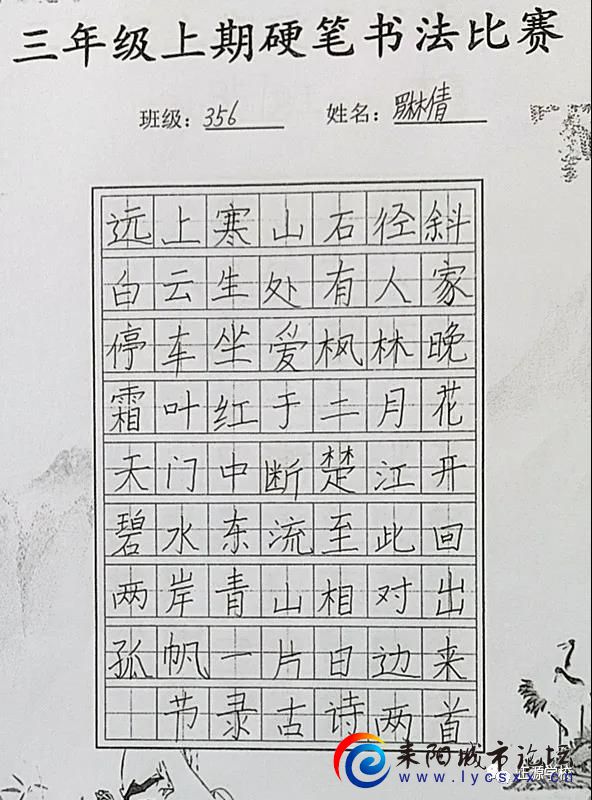 三年级上期硬笔书法比赛
班级：356 姓名：罗林倩
远上寒山石径斜
白云生处有人家
停车坐爱枫林晚
霜叶红于二月花
天门中断楚江开
碧水东流至此回
两岸青山相对出
孤帆一片日边来
节录古诗两首
耒阳城市论坛
www.lycsxx.cn
正源学校